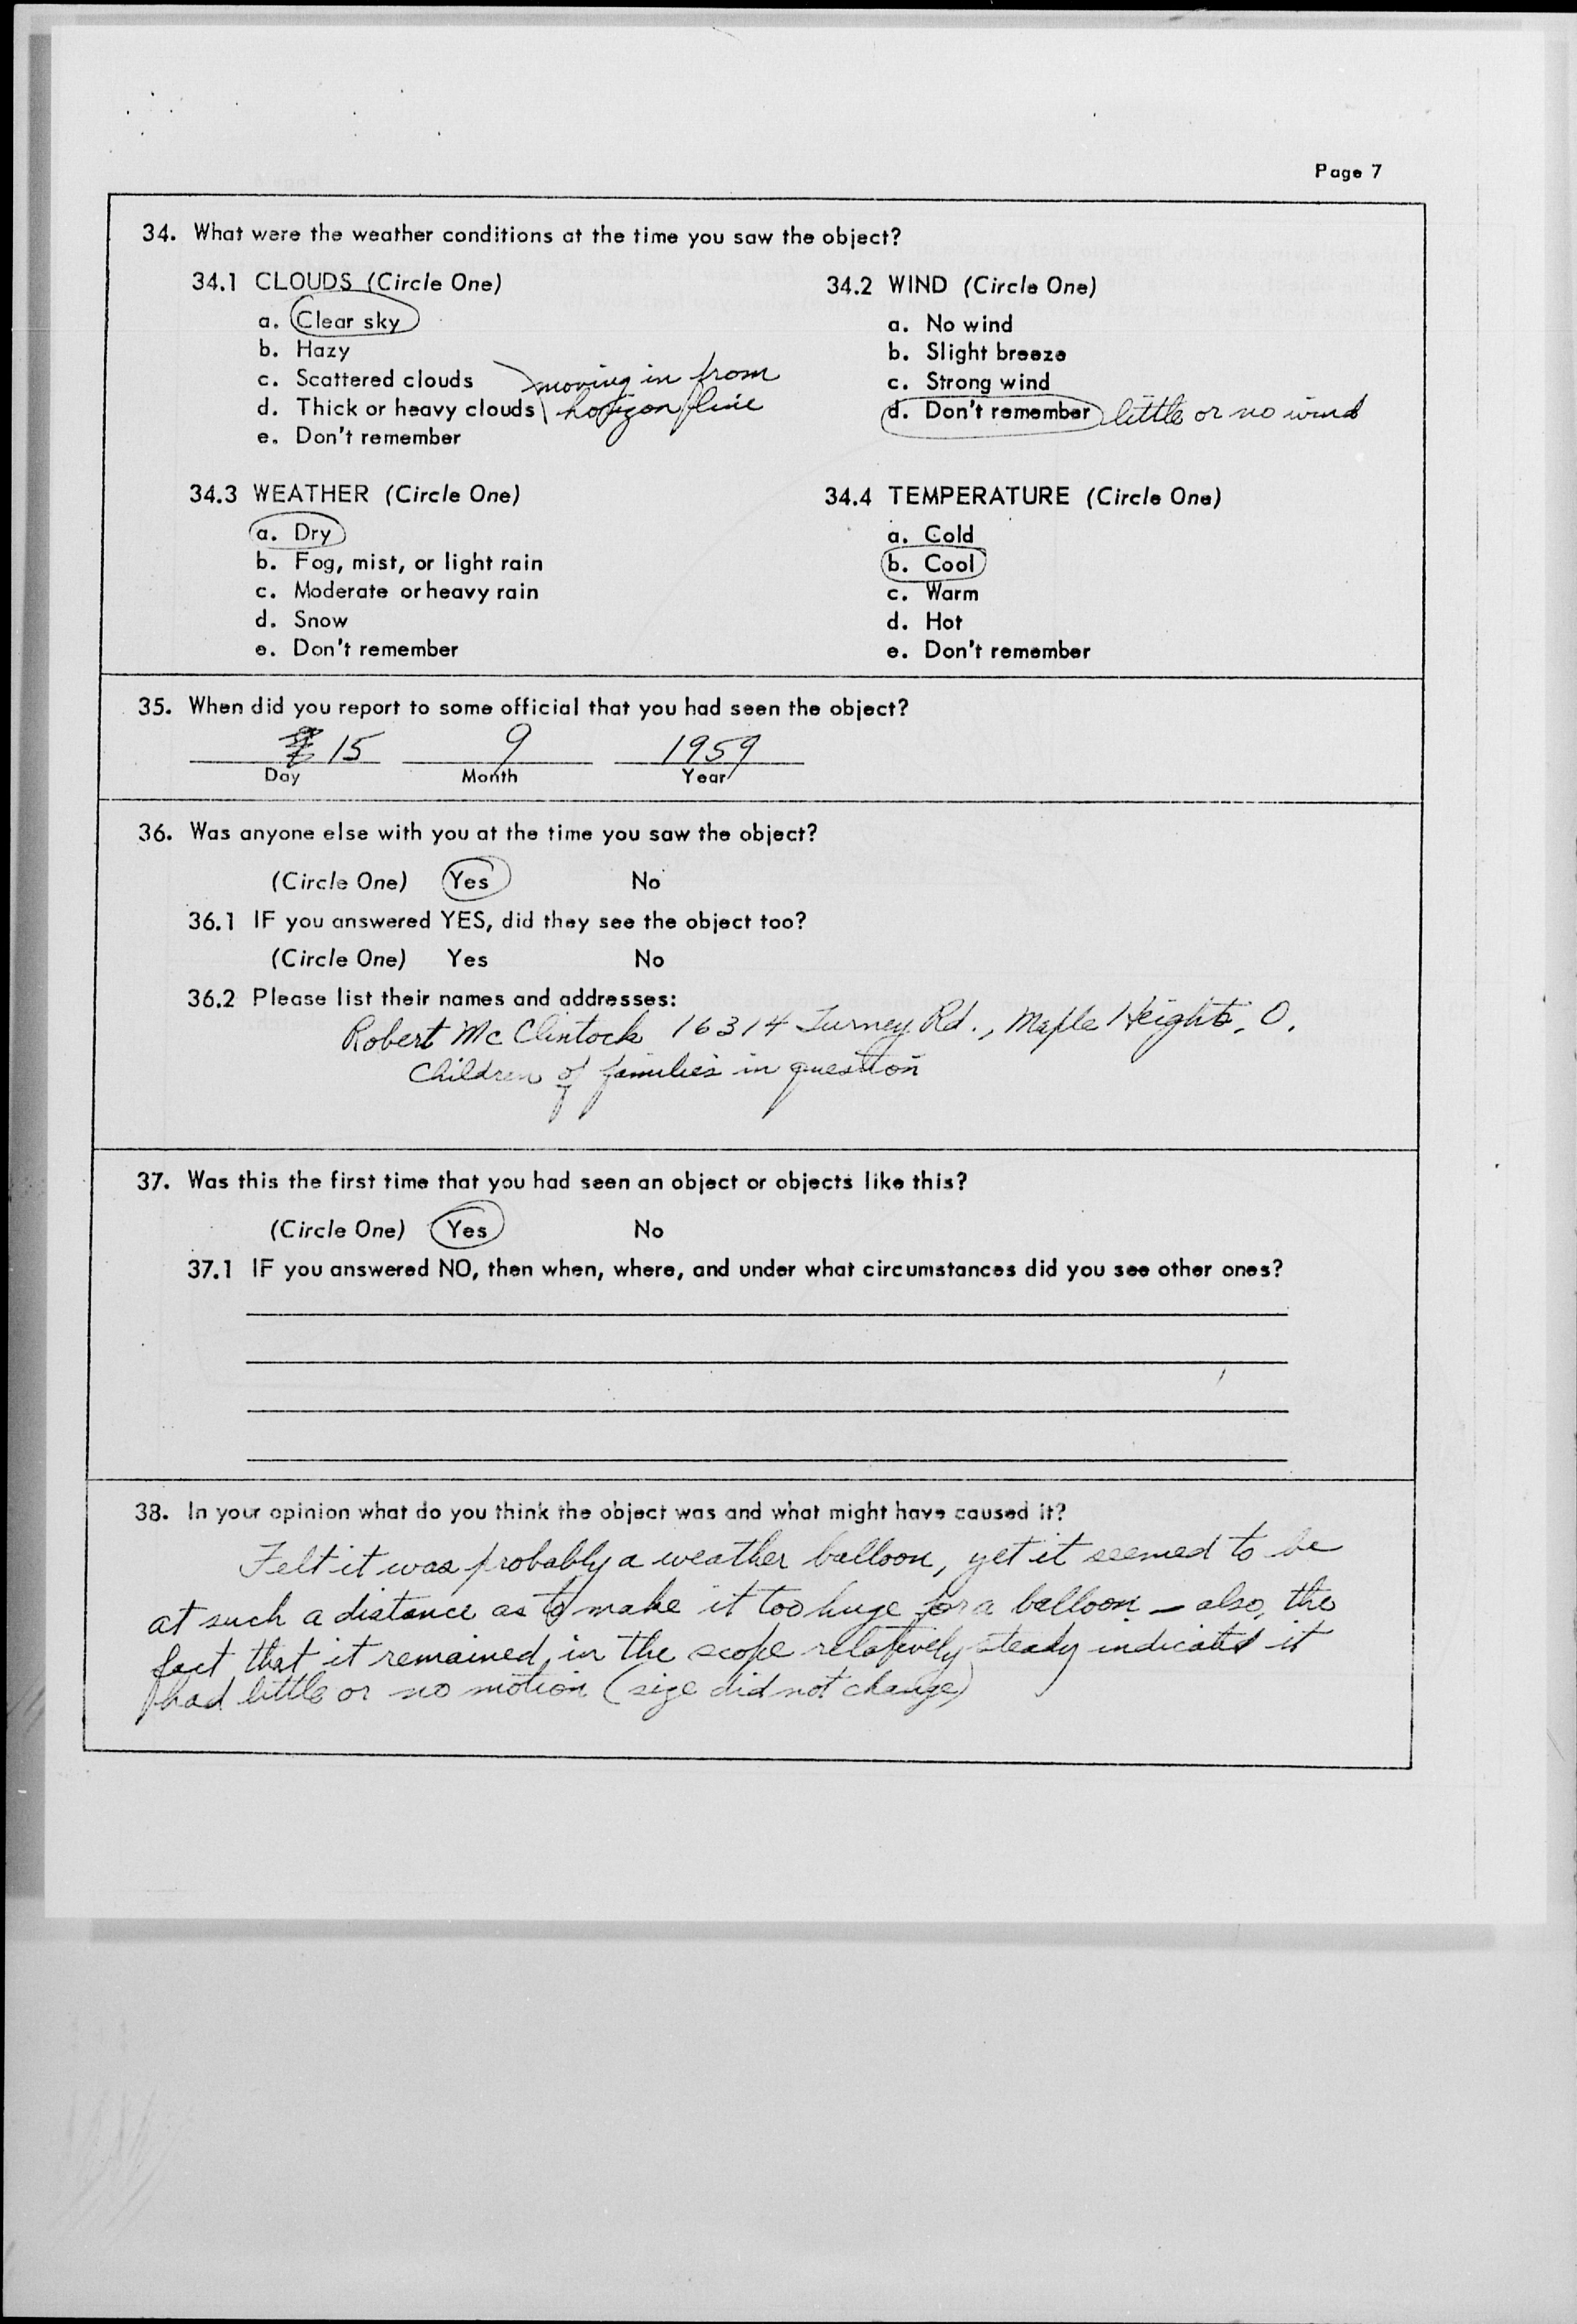 Page 7
34. What were the weather conditions at the time you saw the object?
34.1 CLOUDS (Circle One)
a. Clear sky
b. Hazy
c. Scattered clouds
d. Thick or heavy clouds
e. Don't remember
moving in from
horizon line
34.2 WIND (Circle One)
a. No wind
b. Slight breeze
c. Strong wind
d. Don't remember little or no wind
34.3 WEATHER (Circle One)
a. Dry
b. Fog, mist, or light rain
c. Moderate or heavy rain
d. Snow
e. Don't remember
34.4 TEMPERATURE (Circle One)
a. Cold
b. Cool
c. Warm
d. Hot
e. Don't remember
35. When did you report to some official that you had seen the object?
15 9 1959
Day Month Year
36. Was anyone else with you at the time you saw the object?
(Circle One) Yes No
36.1 IF you answered YES, did they see the object too?
(Circle One) Yes No
36.2 Please list their names and addresses:
Robert McClintock 16314 Turney Rd., Maple Heights, O.
Children of families in question
37. Was this the first time that you had seen an object or objects like this?
(Circle One) Yes No
37.1 IF you answered NO, then when, where, and under what circumstances did you see other ones?
38. In your opinion what do you think the object was and what might have caused it?
Felt it was probably a weather balloon, yet it seemed to be
at such a distance as to make it too huge for a balloon – also, the
fact that it remained in the scope relatively steady indicated it
had little or no motion (size did not change)